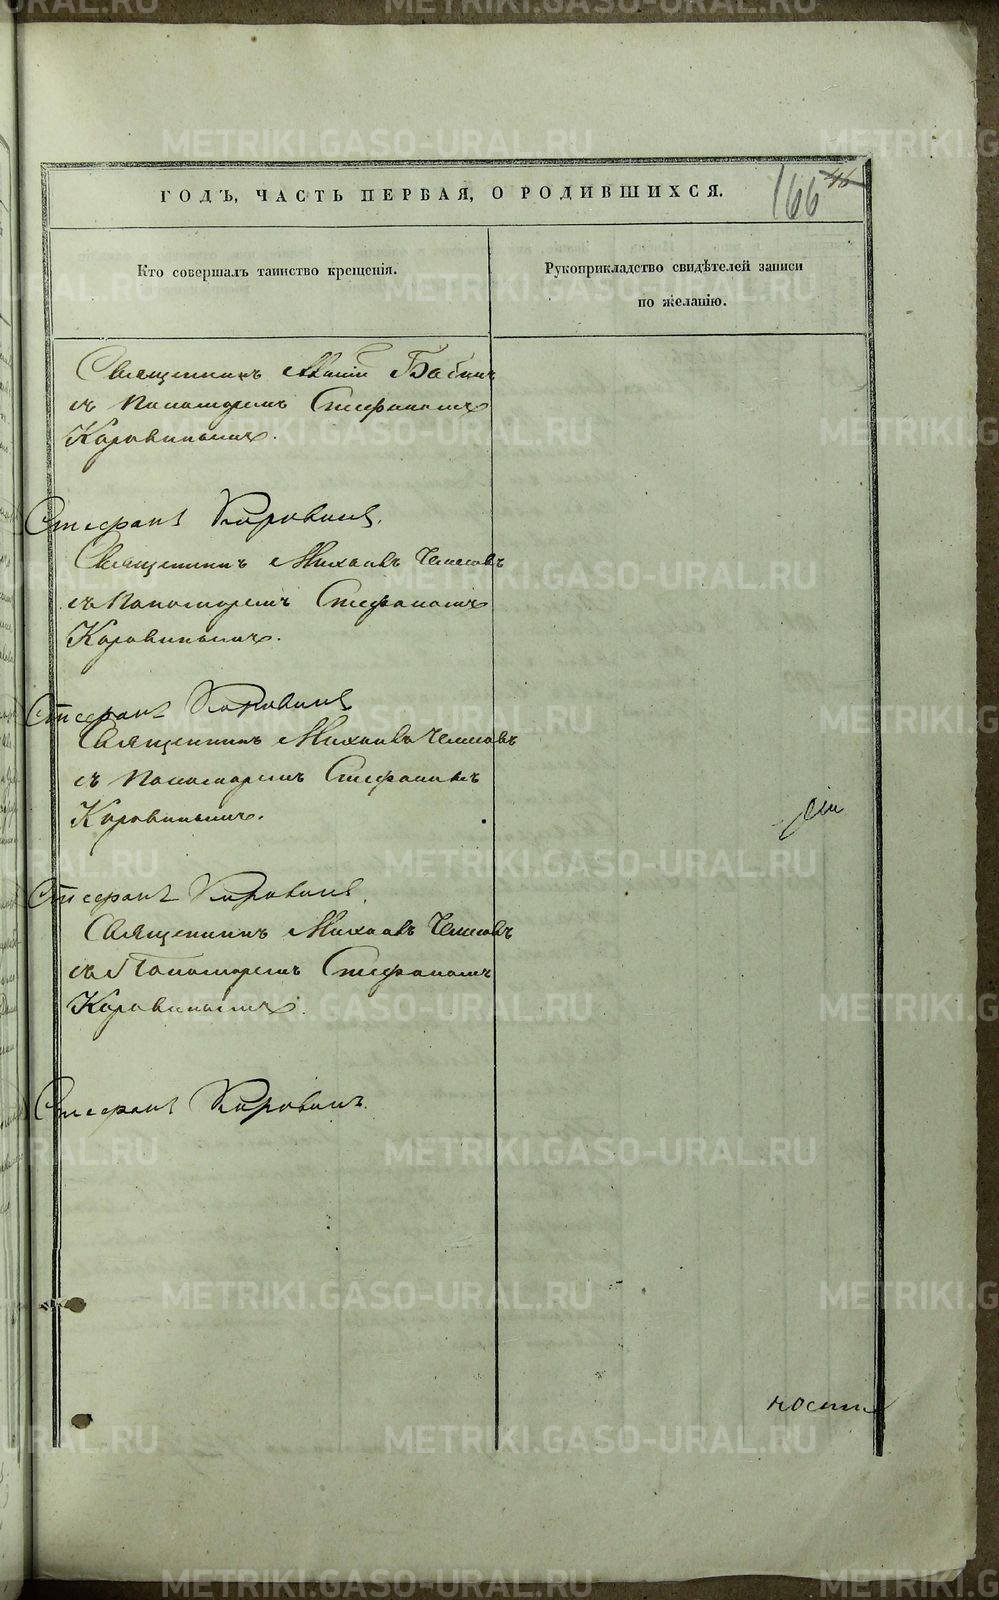 ГОДЪ, ЧАСТЬ ПЕРВАЯ, О РОДИВШИХСЯ.
166 46
Кто совершалъ таинство крещенія.
Рукоприкладство свидѣтелей записи
по желанію.
Священникъ
съ Пономаремъ Стефаномъ
Коровинымъ.
Стефанъ Коровинъ.
Священникъ Михаилъ
съ Пономаремъ Стефаномъ
Коровинымъ.
Стефанъ Коровинъ
Священникъ Михаилъ
съ Пономаремъ Стефаномъ
Коровинымъ.
Стефанъ Коровинъ.
Священникъ Михаилъ
съ Пономаремъ Стефаномъ
Коровинымъ.
Стефанъ Коровинъ.
METRIKI.GASO-URAL.RU